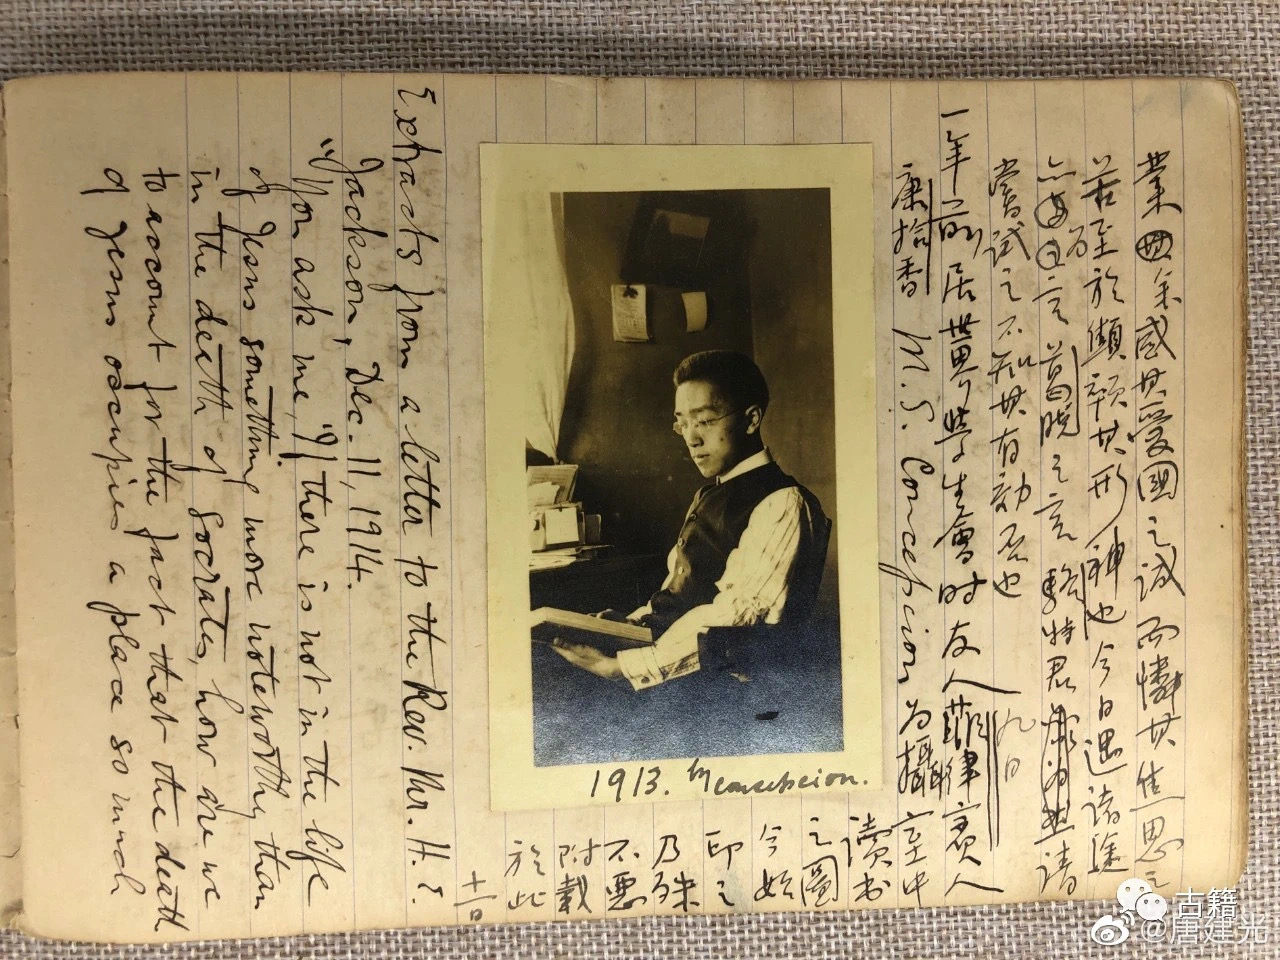 余感其愛國之誠而憐其焦思之
苦至於其形神也今日遇諸途
言之言特君請
嘗試之不知其有効否也 九日
一年前居世界學生會時友人菲律賓人
康捨香 M. S. Concepcion 為攝室中
讀書
之圖
今始
印之
乃殊
不惡
附載
於此
十一日
1913. by Concepcion.
Extracts from a letter to the Rev. Mr. H. ?
Jackson, Dec. 11, 1914.
"You ask me, 'If there is not in the life
of Jesus something more noteworthy than
in the death of Socrates, how are we
to account for the fact that the death
of Jesus occupies a place so much
古籍
@唐建光